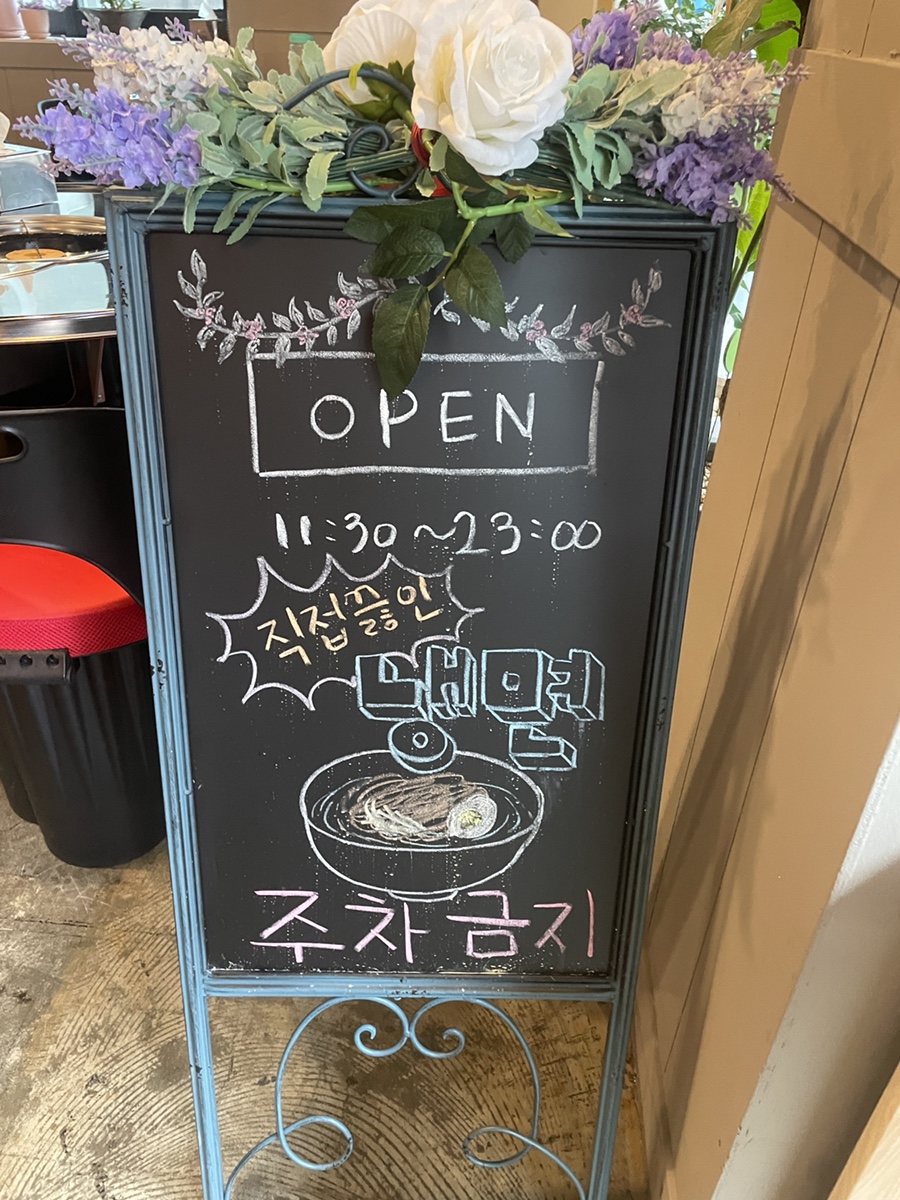 OPEN
11:30~23:00
직접끓인
냉면
주차금지